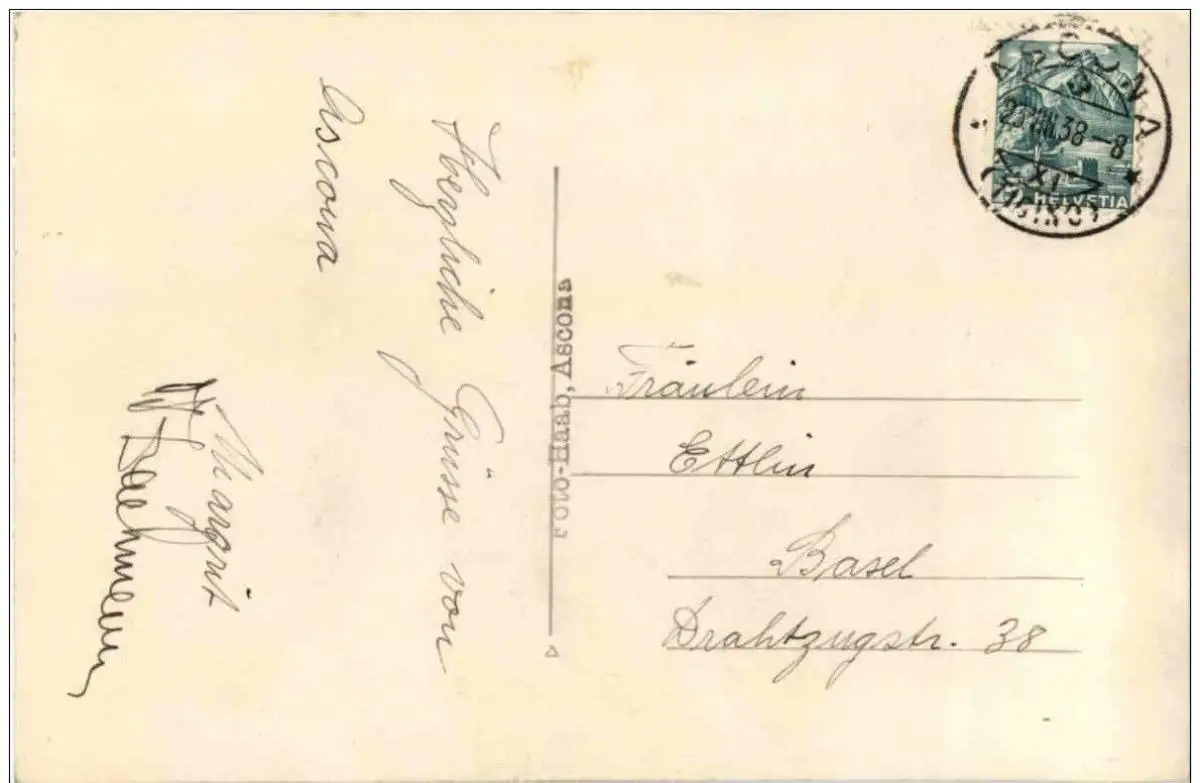 Herzliche Grüsse von
Ascona
Margrit
Foto-Haab, Ascona
HELVETIA
ASCONA
23.VIII.38-8
XI
(TICINO)
Fräulein
Ettlin
Basel
Drahtzugstr. 38